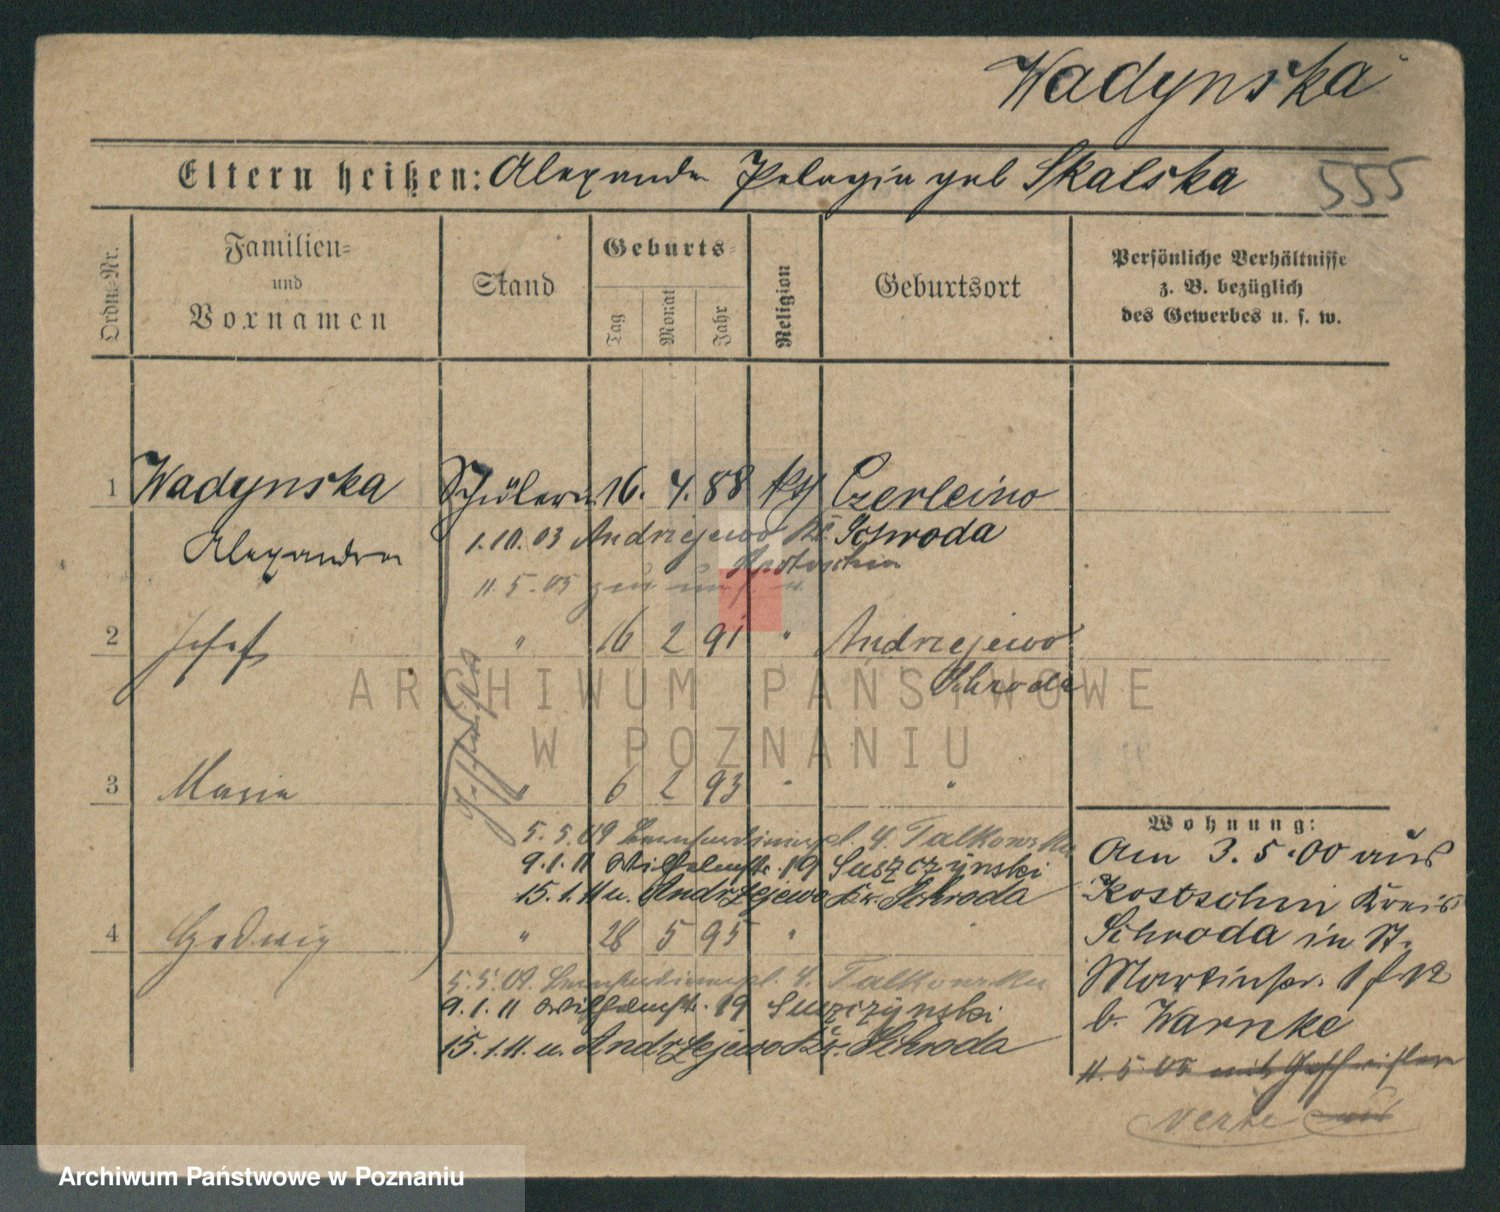 Wadynska
Eltern heißen: Alexander Pelagia geb Skalska
555
Ordn.-Nr.
Familien-
und
Vornamen
Stand
Geburts-
Tag
Monat
Jahr
Religion
Geburtsort
Persönliche Verhältnisse
z. B. bezüglich
des Gewerbes u. s. w.
1 Wadynska Schülerin 16. 4. 88 Czerleino
Alexandra
1.10.03 Andrzejewo Kr. Schroda
Kostschin
11 5. 05
2 Josef " 16 2 91 " Andrzejewo
Schroda
3 Maria " 6 2 93 " "
5. 5. 09 Bernhardinerpl. 4. Falkowska
9.1.11 Wilhelmstr. 19 Suszczynski
15.1.11 u. Andrzejewo Kr. Schroda
4 Hedwig " 28 5 95 " "
5.5.09. Bernhardinerpl. 4. Falkowska
9.1.11 Wilhelmstr. 19 Suszczynski
15.1.11. u. Andrzejewo Kr. Schroda
Wohnung:
Am 3. 5. 00 aus
Kostschin Kreis
Schroda in St.
Martinstr.
b. Warnke
11. 5 05 mit Geschwistern
ARCHIWUM PAŃSTWOWE
W POZNANIU
Archiwum Państwowe w Poznaniu